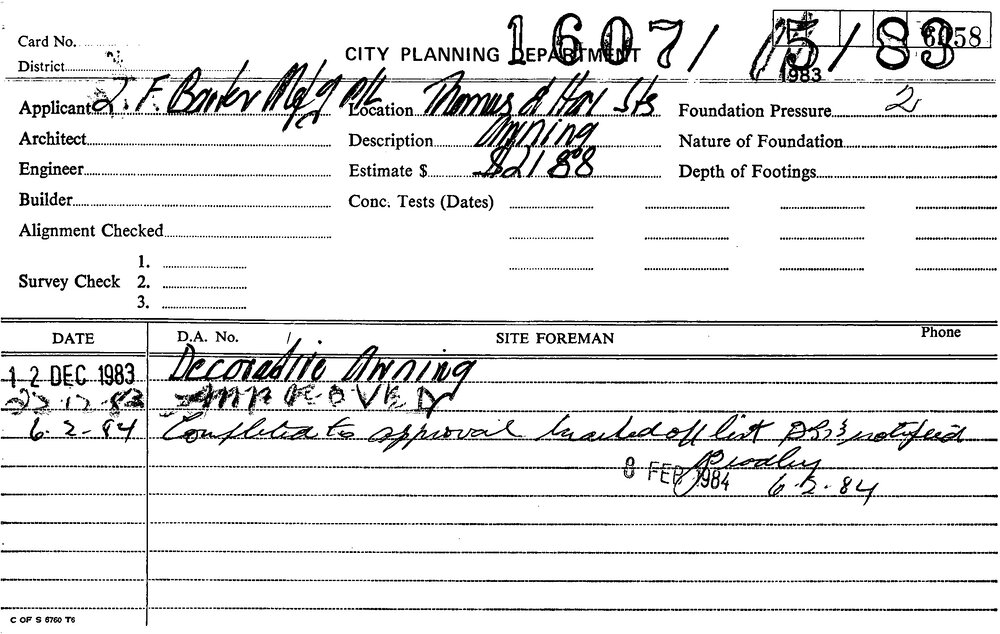 1607/15/83
6058
Card No.
CITY PLANNING DEPARTMENT
1983
District
Applicant J. F. Barker Mfg P/L Location Thomas & Hay Sts Foundation Pressure 2
Architect Description Awning Nature of Foundation
Engineer Estimate $ $2188 Depth of Footings
Builder Conc. Tests (Dates)
Alignment Checked
1.
Survey Check 2.
3.
DATE D.A. No. / SITE FOREMAN Phone
12 DEC 1983 Decorative Awning
22.12.83 APPROVED
6.2.84 Completed to approval off list notified
8 FEB 1984 6.2.84
C OF S 6760 T6